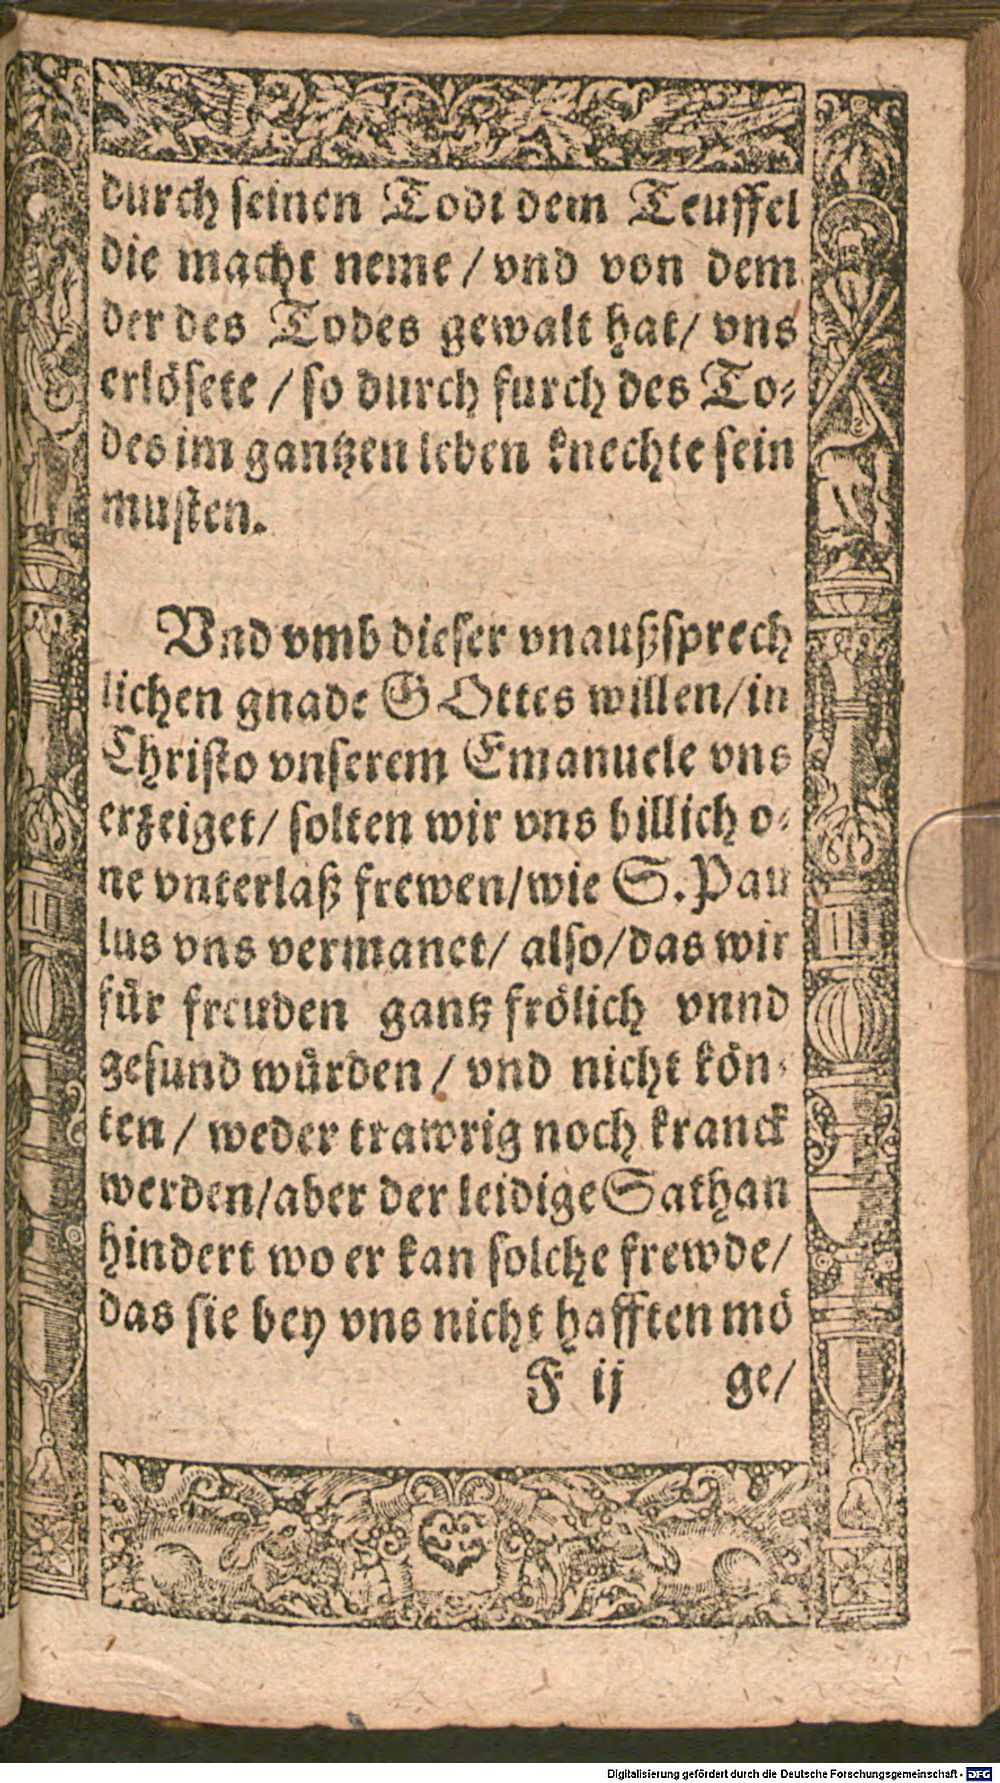 durch seinen Todt dem Teuffel
die macht neme / vnd von dem
der des Todes gewalt hat / vns
erlösete / so durch furch des To⸗
des im gantzen leben knechte sein
musten.
Vnd vmb dieser vnaußsprech
lichen gnade GOttes willen / in
Christo vnserem Emanuele vns
erzeiget / solten wir vns billich o⸗
ne vnterlaß frewen / wie S. Pau
lus vns vermanet / also / das wir
für freuden gantz frölich vnnd
gesund würden / vnd nicht kön⸗
ten / weder trawrig noch kranck
werden / aber der leidige Sathan
hindert wo er kan solche frewde /
das sie bey vns nicht hafften mö
F ij ge /
Digitalisierung gefördert durch die Deutsche Forschungsgemeinschaft - DFG